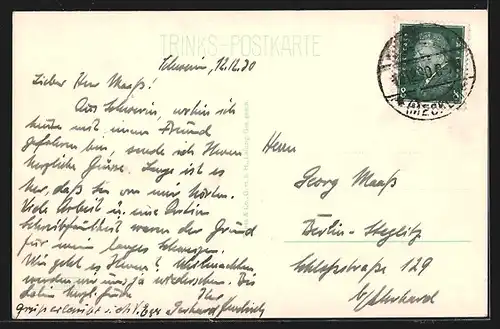 TRINKS-POSTKARTE
Schwerin, 12.12.30
Lieber Herr Maaß!
Aus Schwerin, wohin ich
heute mit einem Freund
gefahren bin, sende ich Ihnen
herzliche Grüsse. Lange ist es
her, daß Sie von mir hörten.
Viele Arbeit u. eine
Schreibfaulheit waren der Grund
für mein langes Schweigen.
Wie geht es Ihnen? Weihnachten
werden wir uns ja wiedersehen. Bis
dahin herzl. Grüße Ihr
Gerhard
Herrn
Georg Maaß
Berlin-Steglitz
Schloßstraße 129
b/Ehrhard
8 8
(MECKL